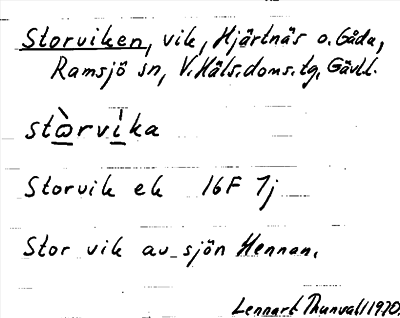 Storviken, vik, Hjärtnäs o. Gåda,
Ramsjö sn, V. Häls. doms. tg, Gävl.l.
stɷ̀rvi̍ka
Storvik ek 16F 7j
Stor vik av sjön Hennan.
Lennart Thunvall 1970.